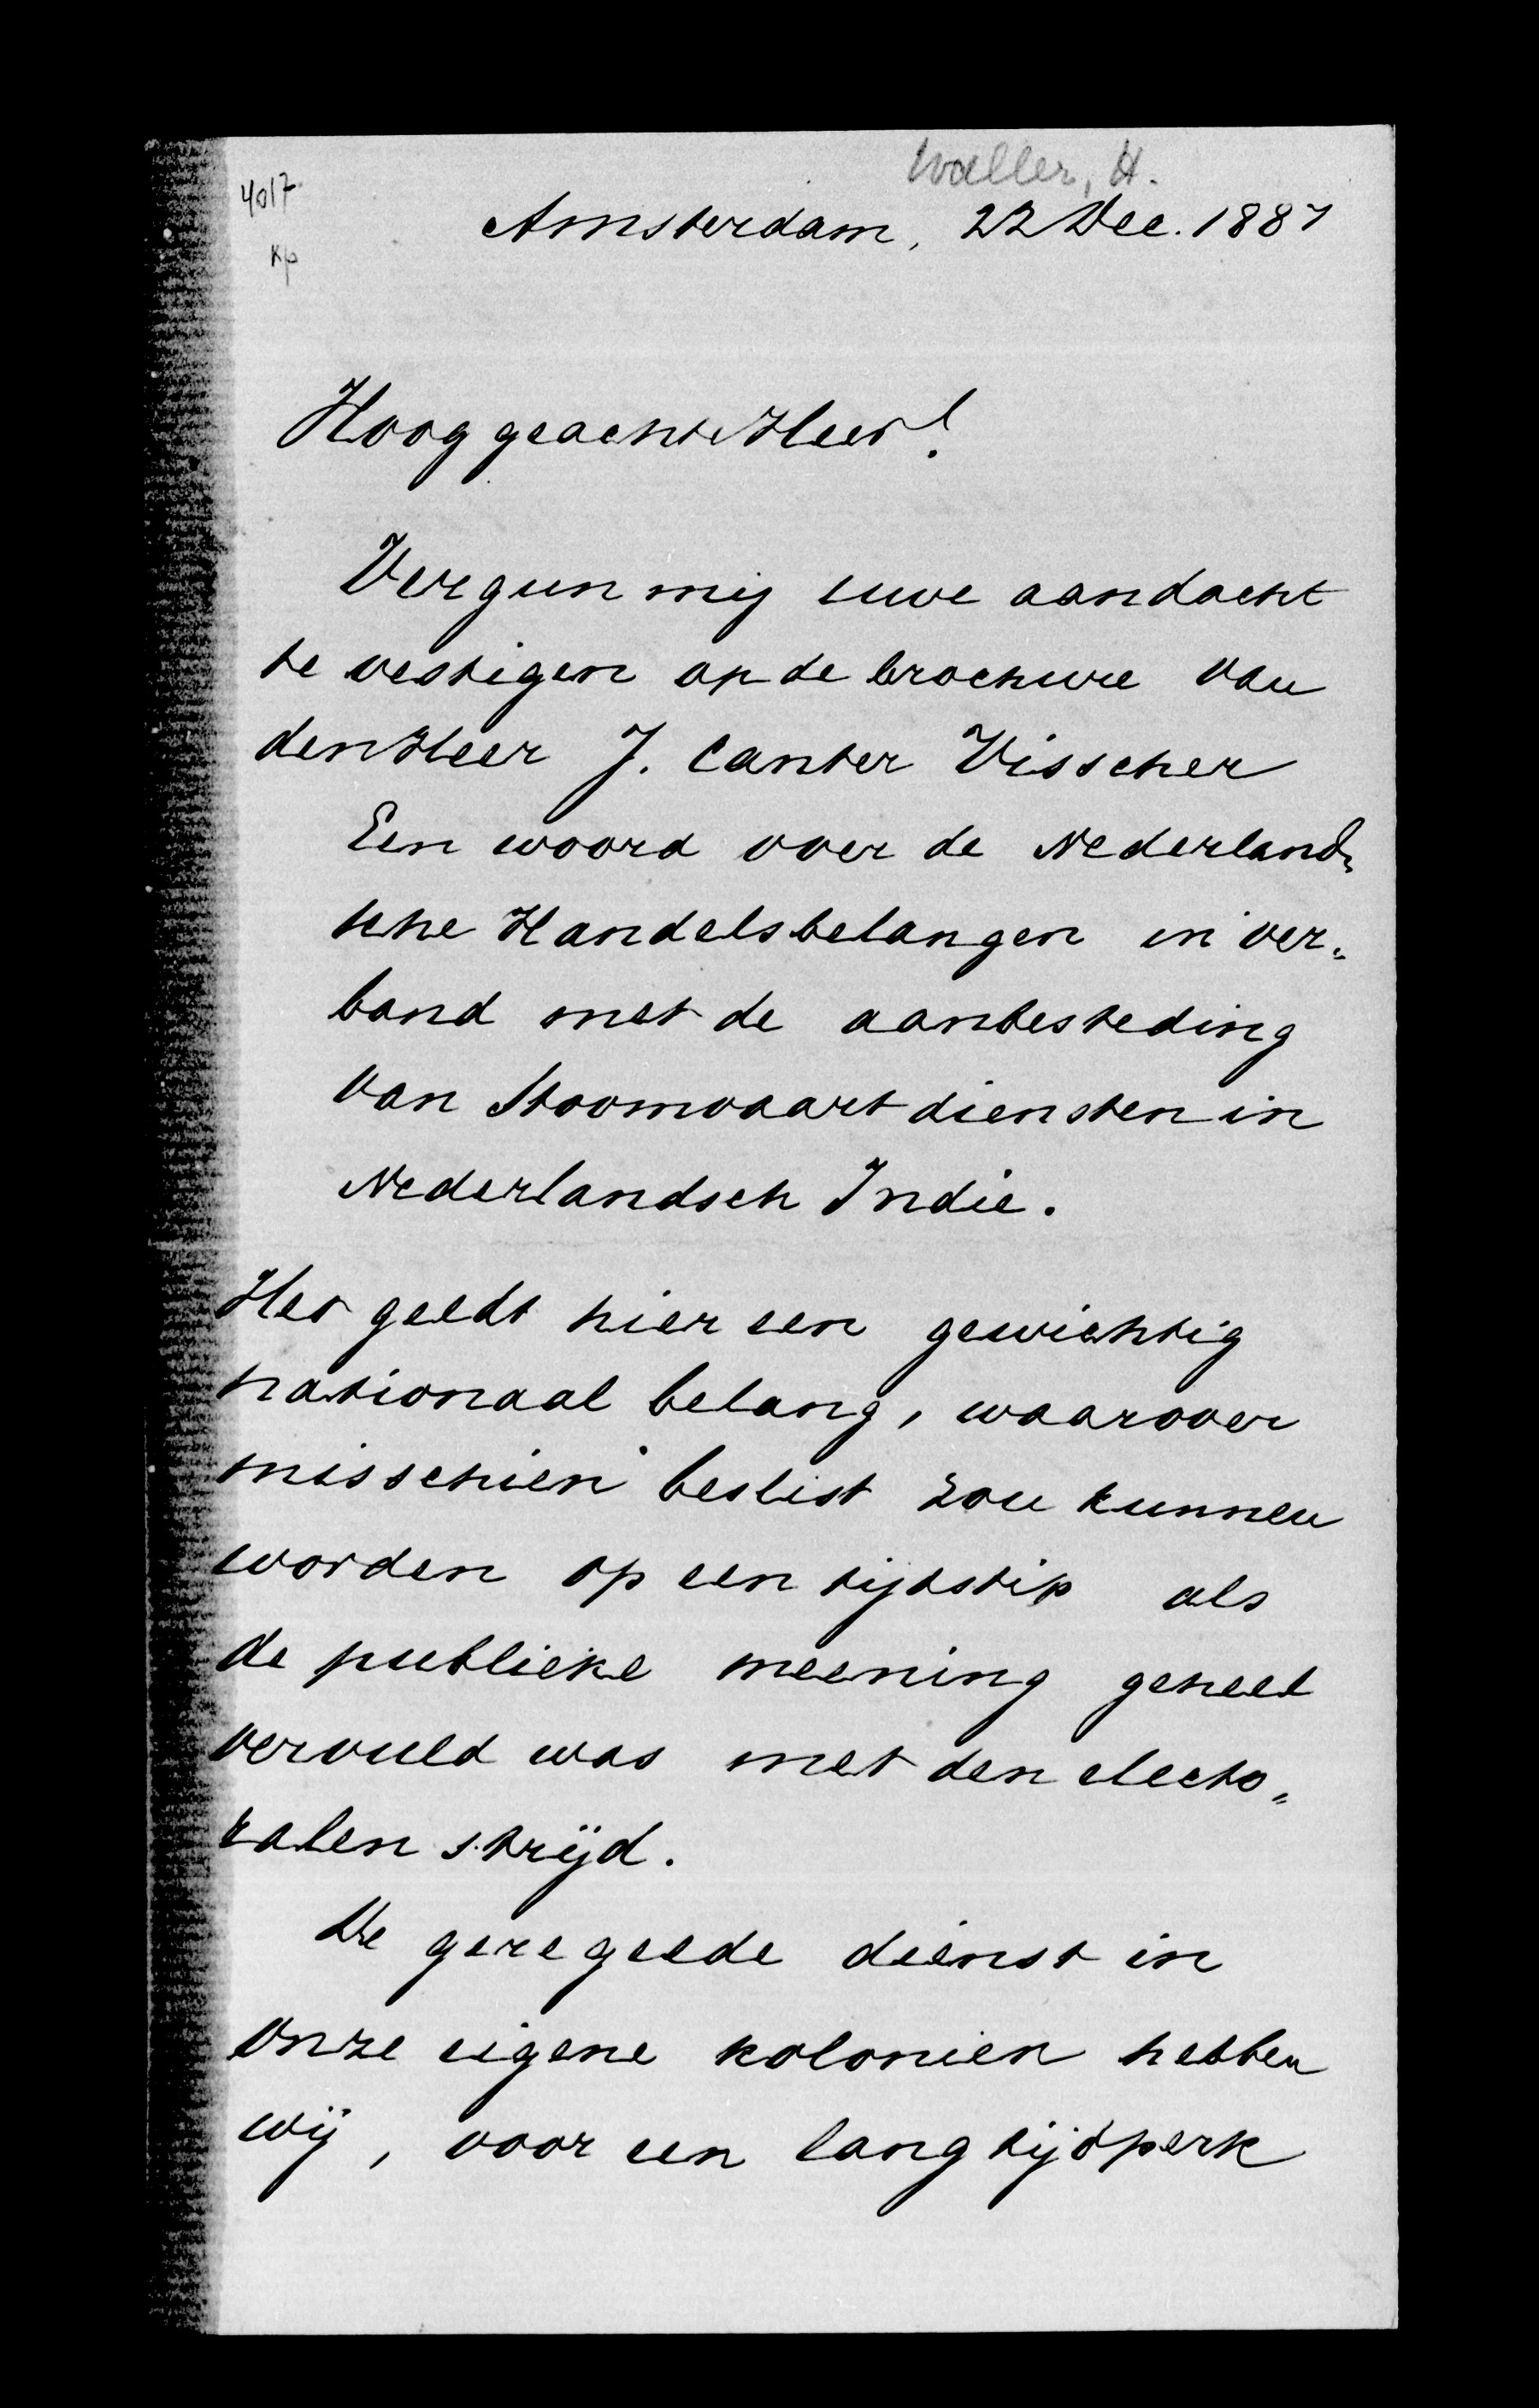 Waller, H.
4017
Kp
Amsterdam, 22 Dec. 1887
Hooggeachte Heer!
Vergun mij uwe aandacht
te vestigen op de brochure van
den Heer J. Canter Visscher
Een woord over de Nederland-
sche Handelsbelangen in ver-
band met de aanbesteding
van Stoomvaartdiensten in
Nederlandsch Indie.
Het geldt hier een gewichtig
nationaal belang, waarover
misschien beslist zou kunnen
worden op een tijdstip als
de publieke meening geheel
vervuld was met den electo-
ralen strijd.
De geregelde dienst in
onze eigene kolonien hebben
wij, voor een lang tijdperk